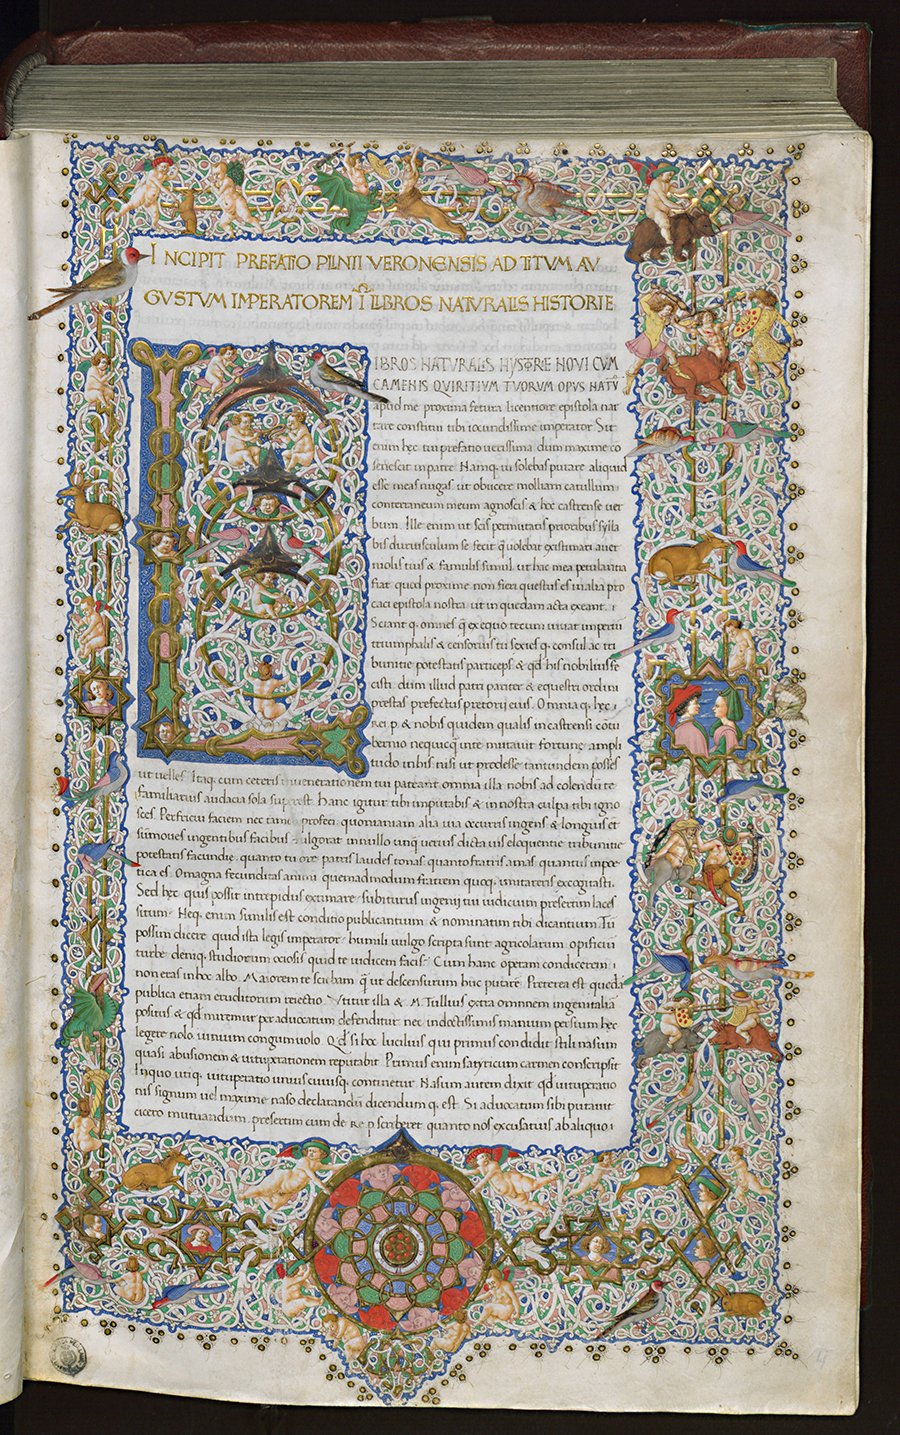 INCIPIT PREFATIO PLINII VERONENSIS AD TITUM AU
GUSTUM IMPERATOREM I LIBROS NATURALIS HISTORIE
LIBROS NATURALIS HYSTORIE NOVI CUM
CAMENIS QUIRITIUM TUORUM OPUS NATU
apud me proxima fetura licentiore epistola nar
rare constitui tibi iocundissime imperator. Sit
enim hęc tui prefatio verissima dum maximo co
senescit in patre. Namq. tu solebas putare aliquid
esse meas nugas ut obiicere molliam catullum
conterraneum meum agnoscis & hoc castrense ver
bum. Ille enim ut scis permutatis prioribus sylla
bis duriusculum se fecit q̄ volebat existimari a ver
niolis tuis & famulis simul ut hac mea petulantia
fiat quod proxime non fieri questus es in alia pro
caci epistola nostra ut in quedam acta exeant. i
Sciant q. omnes q̄ ex equo tecum vivat imperiū
triumphalis & censorius tu sexies q. consul ac tri
bunitie potestatis particeps & qd his nobilius fe
cisti dum illud patri pariter & equestri ordini
prestas prefectus pretorij eius. Omnia q. hęc i
Rei p. & nobis quidem qualis in castrensi cotu
bernio nec quicq̄ in te mutavit fortune ampli
tudo in his nisi ut prodesse tantundem posses
ut velles. Itaq. cum ceteris i venerationem tui pateant omnia illa nobis ad colendū te
familiarius audacia sola superest. Hanc igitur tibi imputabis & in nostra culpa tibi igno
sces. Perfricui faciem nec tamē profeci quoniam alia via occurris ingens & longius et
sūmoves ingentibus facibus fulgorat in nullo unq̄ verius dicta vis eloquentie tribunitie
potestatis facundie. quanto tu ore patris laudes tonas. quanto fratris amas. quantus in poe
tica es. O magna fecunditas animi quemadmodum fratrem quoq. imitareris excogitasti.
Sed hęc quis possit intrepidus extimare subiturus ingenij tui iudicium presertim laces
situm. Neq. enim similis est conditio publicantium & nominatim tibi dicantium. Tū
possim dicere quid ista legis imperator. humili vulgo scripta sunt agricolarum opificū
turbe deniq. studiorum ociosis quid te iudicem facis. Cum hanc operam condicerem i
non eras in hoc albo. Maiorem te sciebam q̄ ut descensurum huc putarē. Preterea est quedā
publica etiam eruditorum reiectio. Utitur illa & M. Tullius extra omnem ingenii aliā
positus & qd miremur per advocatum defenditur. nec indoctissimis manium persium hęc
legere nolo. iunium congum volo. Qd si hoc lucilius qui primus condidit stili nasum
quasi abusionem & vituperationem reputabit. Primus enim satyricum carmen conscripsit
In quo utiq. vituperatio unius cuiusq. continetur. Nasum autem dixit qd vituperatio
nis signum vel maxime naso declarandū dicendum q. est. Si advocatum sibi putavit
cicero mutuandum. presertim cum de RE p scriberet. quanto nos excusatius ab aliquo i